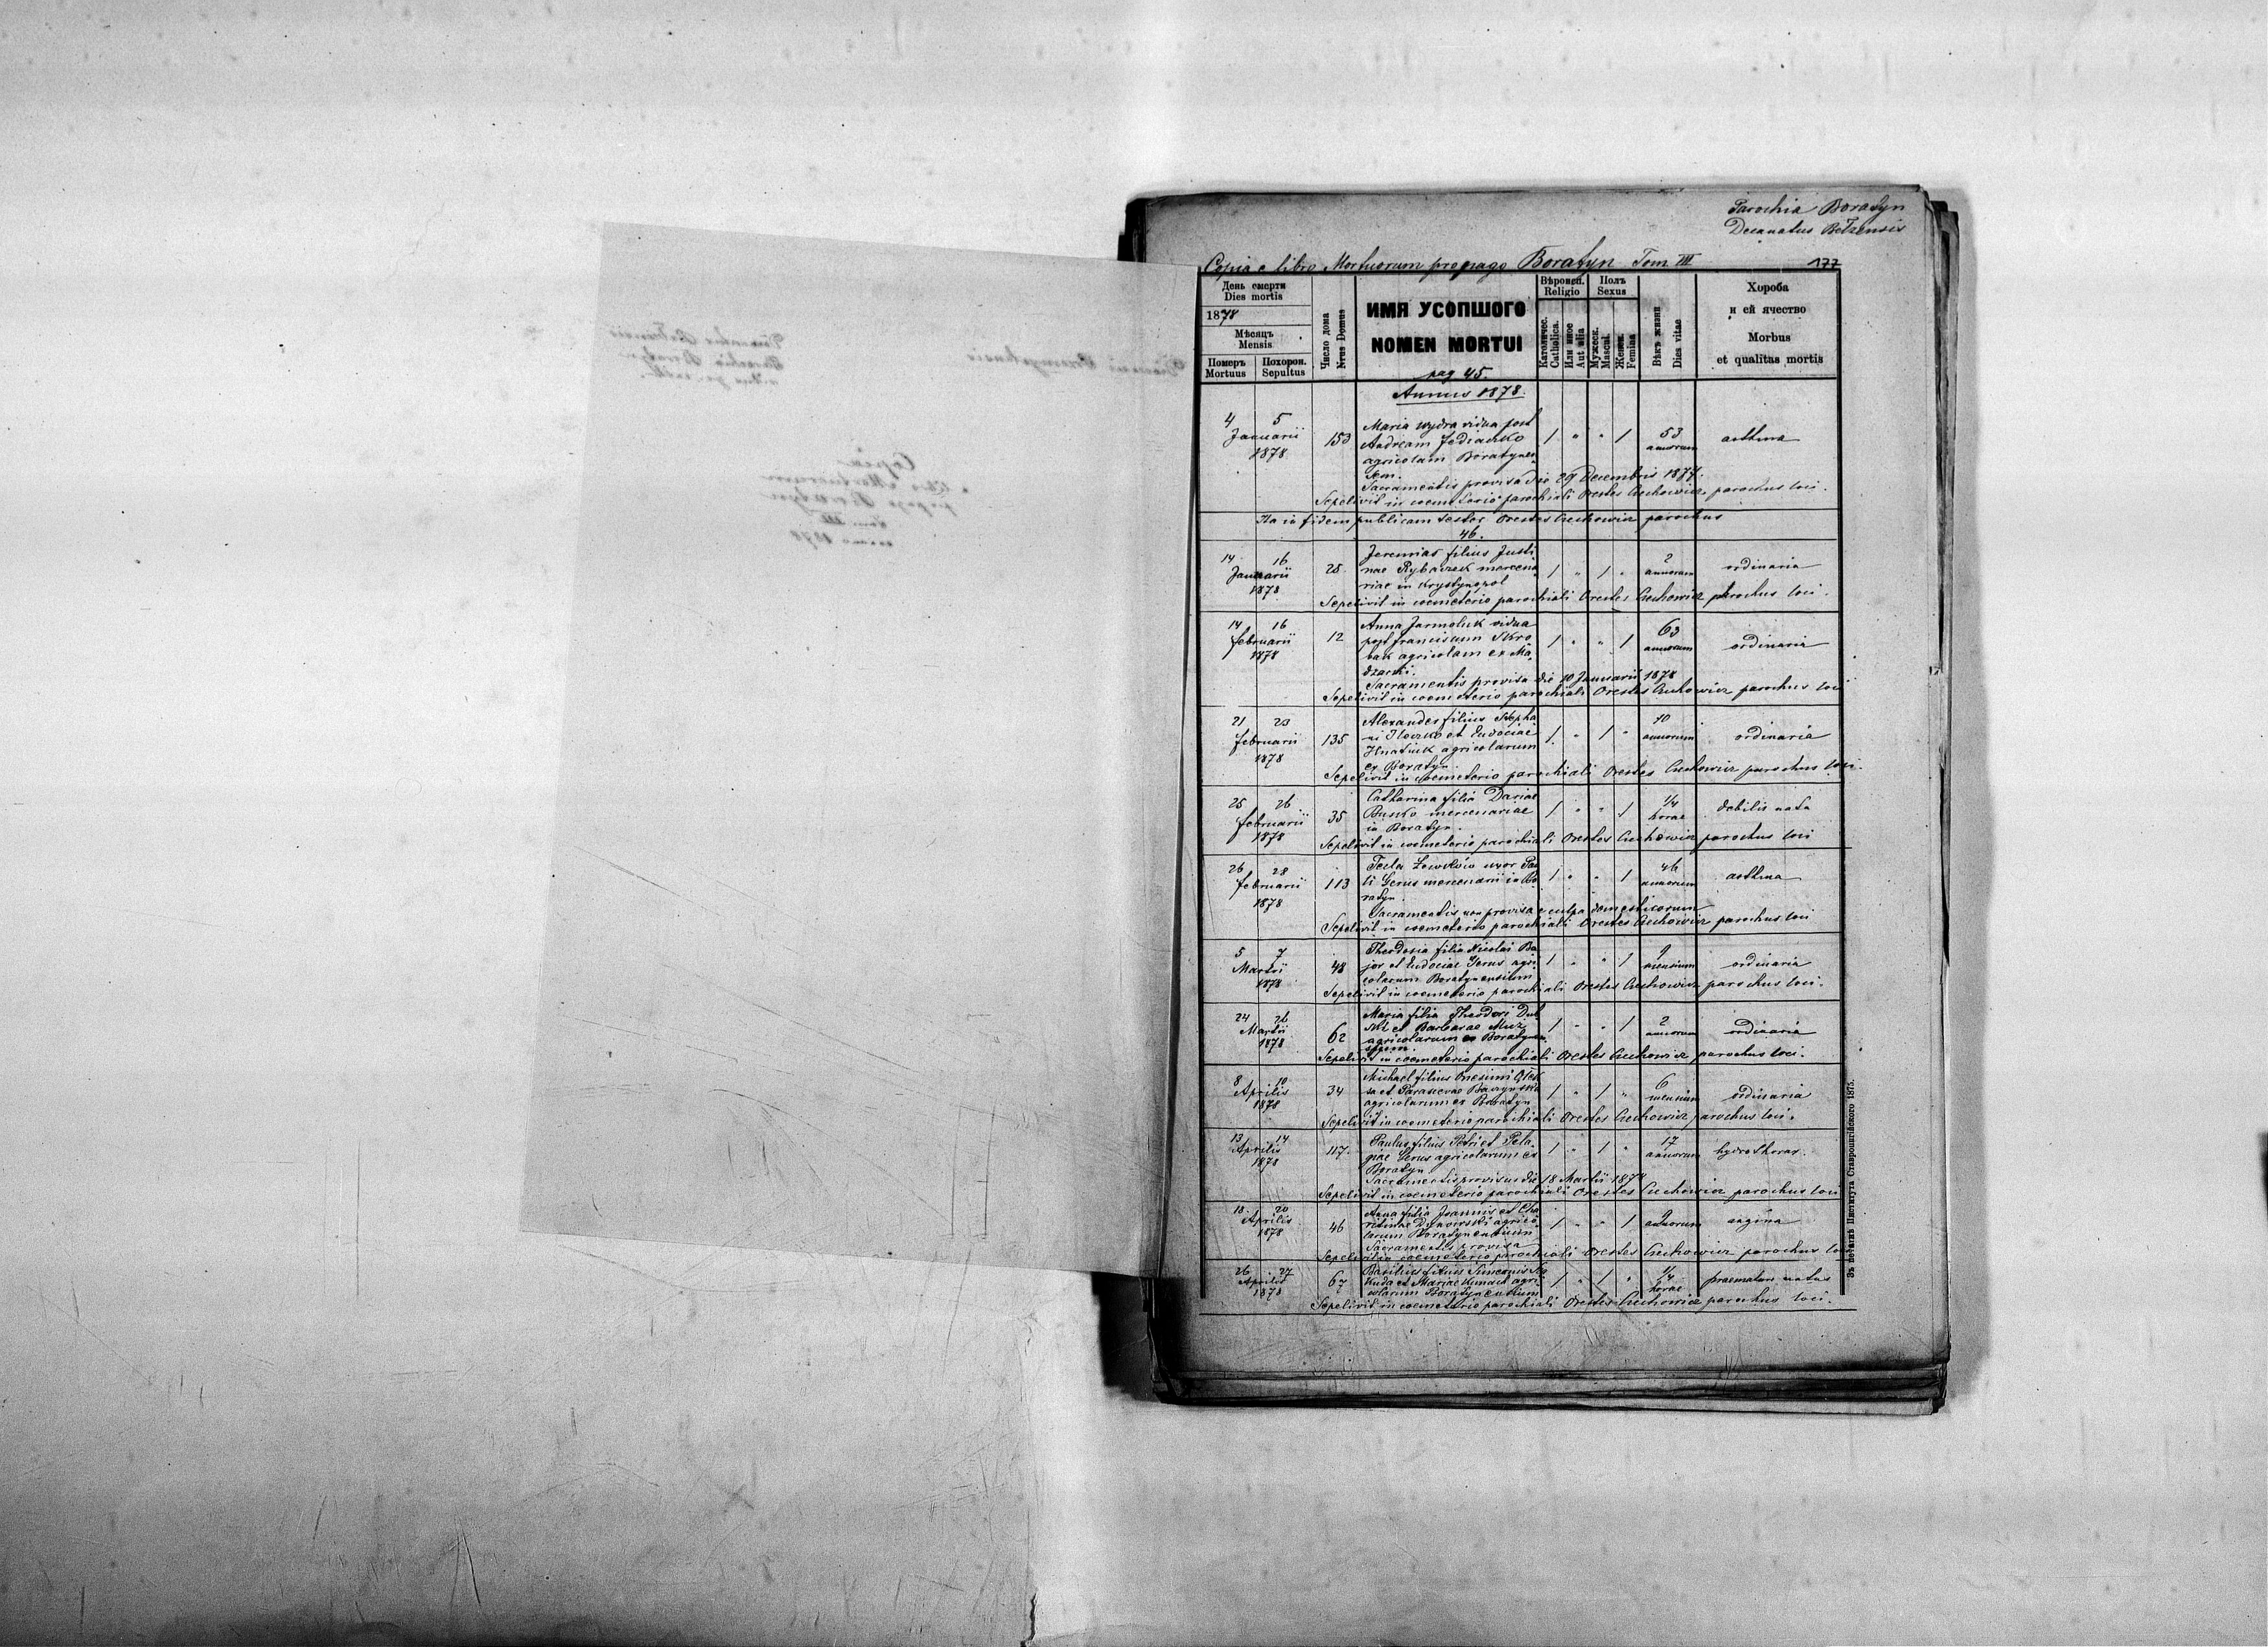 Parochia Boratyn
Decanatus Bełzensis
Copia e libro Mortuorum pro pago Boratyn Tom III
177
День смерти
Dies mortis
1878
Мѣсяцъ
Mensis
Померъ
Mortuus
Похорон.
Sepultus
Число дома
Nrus Domus
ИМЯ УСОПШОГО
NOMEN MORTUI
pag 45.
Вѣроисп.
Religio
Католичес.
Catholica.
Или иное
Aut alia
Полъ
Sexus
Мужеск.
Mascul.
Женск.
Femina
Вѣкъ жизни
Dies vitae
Хороба
и ей ячество
Morbus
et qualitas mortis
Annus 1878.
4 5
Januarii
1878
153
Maria Wydra vidua post
Andream Fediaczko
agricolam Boratynen
sem.
1 " " 1
53
annorum
asthma
Sacramentis provisa die 29 Decembris 1877.
Sepelivit in coemeterio parochiali Orestes Czechowicz parochus loci.
Ita in fidem publicam testor Orestes Czechowicz parochus
46.
14 16
Januarii
1878
25
Jeremias filius Justi
nae Rybaczek mercena
riae in Krystynopol
1 " 1 "
2
annorum
ordinaria
Sepelivit in coemeterio parochiali Orestes Czechowicz parochus loci.
14 16
februarii
1878
12
Anna Jarmoluk vidua
post franciscum Skro
bak agricolam ex Ma
dzarki.
1 " " 1
63
annorum
ordinaria
Sacramentis provisa die 10 Januarii 1878
Sepelivit in coemeterio parochiali Orestes Czechowicz parochus loci
21 23
februarii
1878
135
Alexander filius Stepha
ni et Eudociae
Hnatiuk agricolarum
ex Boratyn.
1 " 1 "
10
annorum
ordinaria
Sepelivit in coemeterio parochiali Orestes Czechowicz parochus loci.
25 26
februarii
1878
35
Catharina filia Dariae
Busko mercenariae
in Boratyn.
1 " " 1
1/4
horae
debilis nata
Sepelivit in coemeterio parochiali Orestes Czechowicz parochus loci
26 28
februarii
1878
113
Tecla Lewków uxor Pau
li Gerus mercenarii in Bo
ratyn.
1 " " 1
46
annorum
asthma
Sacramentis non provisa e culpa domesticorum
Sepelivit in coemeterio parochiali Orestes Czechowicz parochus loci
5 7
Martii
1878
48
Theodosia filia Nicolai Ba
jor et Eudociae Gerus agri
colarum Boratynensium
1 " " 1
9
mensium
ordinaria
Sepelivit in coemeterio parochiali Orestes Czechowicz parochus loci.
24 26
Martii
1878
62
Maria filia Theodori Dub
et Barbarae
agricolarum Boratynen
sium.
1 " " 1
2
annorum
ordinaria
Sepelivit in coemeterio parochiali Orestes Czechowicz parochus loci.
8 10
Aprilis
1878
34
Michael filius Onesimi Olek
sa et Parascevae
agricolarum ex Boratyn
1 " 1 "
6
mensium
ordinaria
Sepelivit in coemeterio parochiali Orestes Czechowicz parochus loci.
13 14
Aprilis
1878
117.
Paulus filius Petri et Pela
giae Gerus agricolarum ex
Boratyn
1 " 1 "
17
annorum
hydrothorax.
Sacramentis provisus die 18 Martii 1878
Sepelivit in coemeterio parochiali Orestes Czechowicz parochus loci
18 20
Aprilis
1878
46
Anna filia Joannis et Cha
ritinae agrico
larum Boratynensium
1 " " 1
9
annorum
angina
Sacramentis provisa
Sepelivit in coemeterio parochiali Orestes Czechowicz parochus loci
26 27
Aprilis
1878
67
Basilius filius Simeonis
et Mariae agri
colarum Boratynensium
1 " 1 "
1/4
horae
praemature natus
Sepelivit in coemeterio parochiali Orestes Czechowicz parochus loci.
Въ печатнѣ Института Ставропигійского 1875.